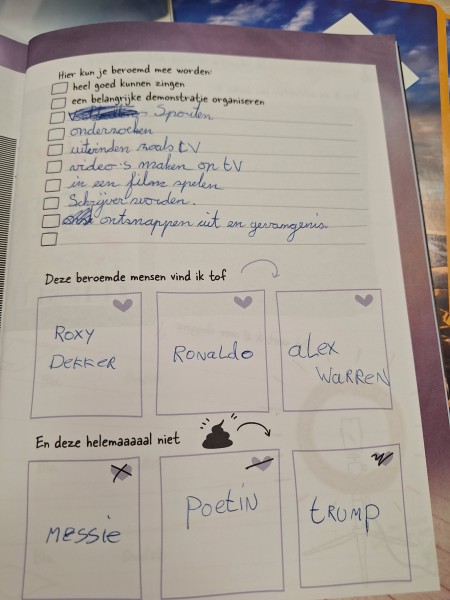 Hier kun je beroemd mee worden:
heel goed kunnen zingen
een belangrijke demonstratie organiseren
Sporten
onderzoeken
uitvinden zoals tV
video's maken op tV
in een film spelen
Schrijver worden.
ontsnappen uit en gevangenis.
Deze beroemde mensen vind ik tof
ROXY
DEKKER
RONALDO
aLEX
WARREN
En deze helemaaaaal niet
MESSIE
POETIN
tRUMP